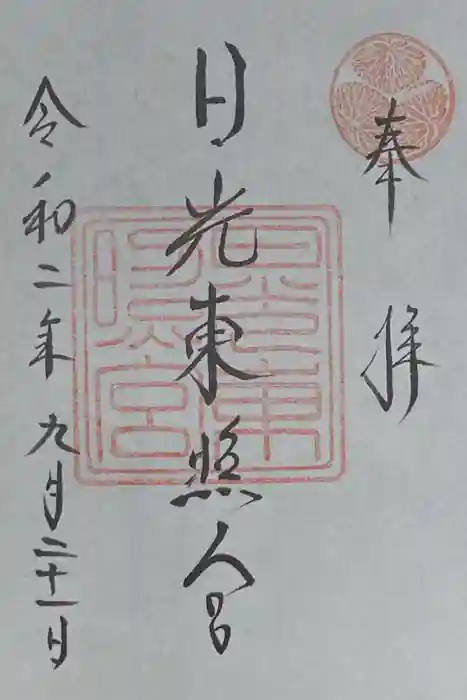 奉拝
日光東照宮
令和二年九月二十一日
日光東照宮